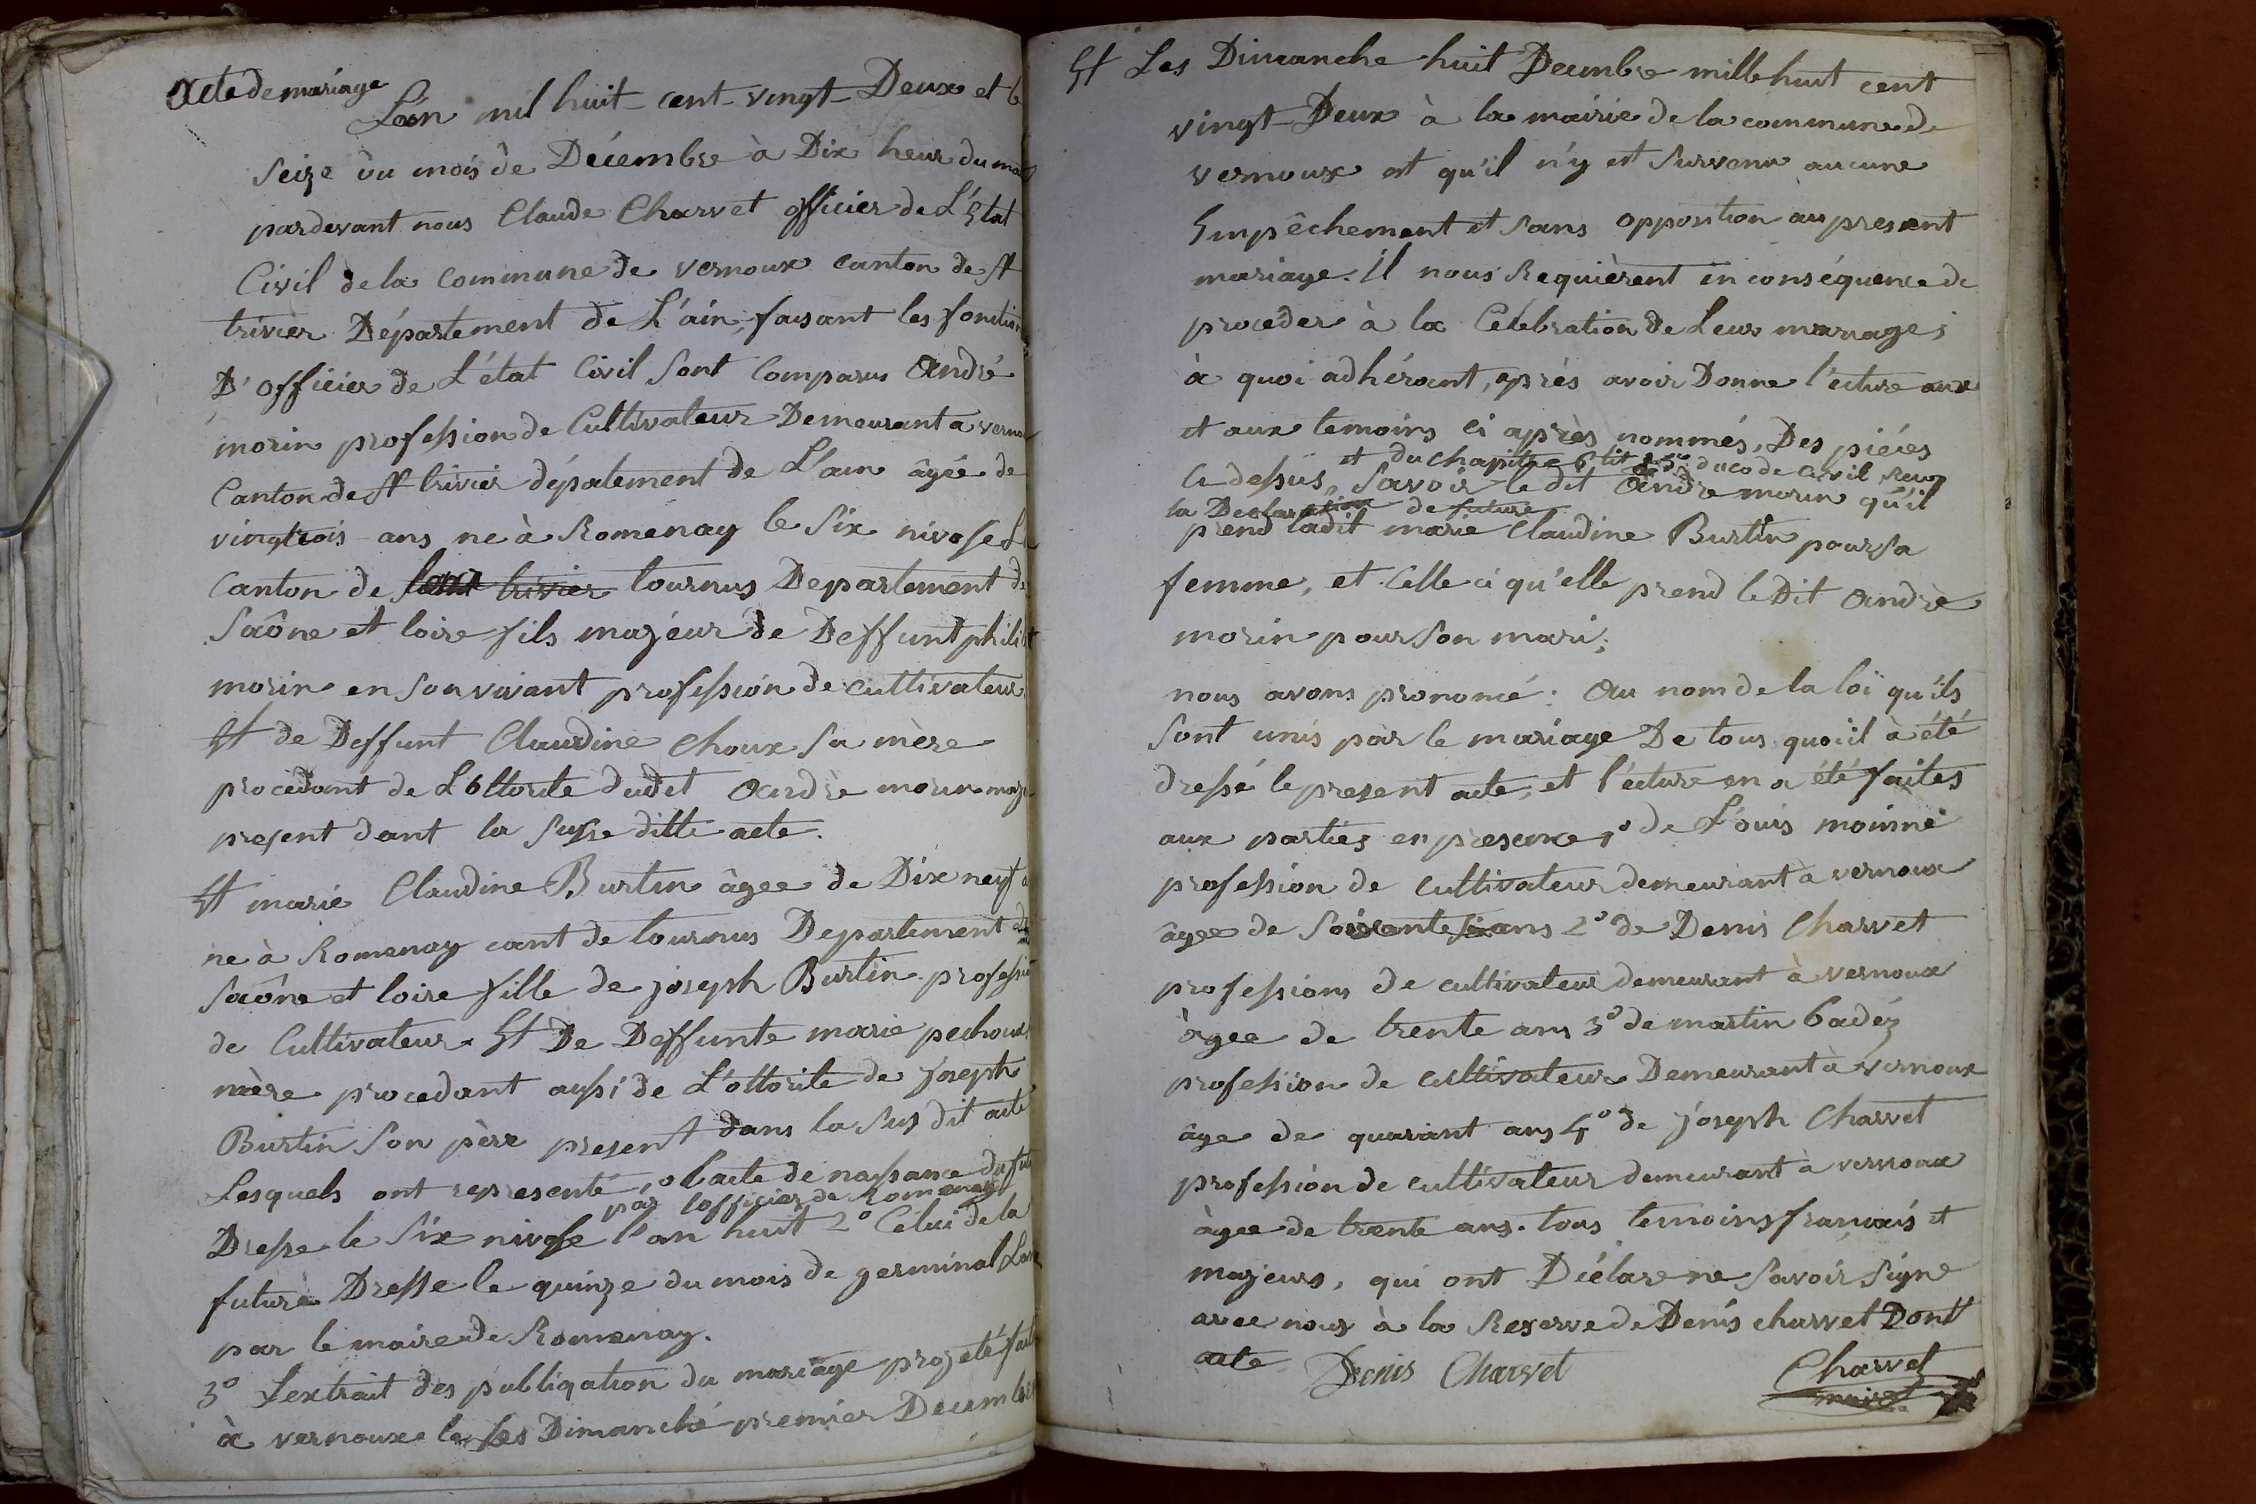 acte de mariage
L'an mil huit cent vingt Deux et le
Seize du mois de Décembre à Dix heur du ma
pardevant nous Claude Charvet officier de L'Etat
Civil de la Commune de vernoux canton de st
trivier Département de L'ain, faisant les fonction
D'officier de L'état Civil Sont Comparus André
morin profession de Cultivateur Demeurant a verno
Canton de st trivier dépatement de L'ain âgée de
vingtrois ans ne à Romenay le Six nivose L
Canton de trivier tournus Departement de
Saône et loire fils majeur de Deffunt philib
morin en Son vivant profession de cultivateur
Et de Deffunt Claudine Choux Sa mère
procedant de L'ottorite dudit André morin maj
present dant la Susse ditte acte.
Et marie Claudine Burtin âgee de Dix neuf a
ne à Romenay cant de tournus Departement de
Saône et loire fille de joseph Burtin professio
de Cultivateur Et De Deffunte marie pechoux
mère procedant aussi de L'ottorite de joseph
Burtin Son père present dans la Sus dit acte
Lesquels ont representé 1o l'acte de naissance du fut
par l'officier de Romenay
Dresse le Six nivose l'an huit 2o Celui de la
future Dresse le quinze du mois de germinal Lan
par le maire de Romenay.
3o Lextrait des publiqation du mariage projeté fait
à vernoux le Les Dimanche premier Decembre
Et Les Dimanche huit Decembre mille huit cent
vingt Deux à la mairie de la commune de
vernoux et qu'il n'y est Survenu aucune
Empêchement et Sans opposition au present
mariage. Il nous Requièrent en conséquence de
proceder à la Célébration de Leur mariage;
à quoi adhérant, après avoir Donne l'ecture aux
et aux temoins ci après nommés, Des piéces
et du chapitre 6 tit 5o du code civil, reçu
ci dessus, Savoir le dit André morin qu'il
la Declaration de future
prend ladit marie Claudine Burtin pour Sa
femme, et Celle ci qu'elle prend le Dit André
morin pour Son mari;
nous avons pronomcé: Au nom de la loi qu'ils
Sont unis par le mariage De tous quoi il à été
dressé le present acte, et l'ecture en a été faites
aux parties en presence 1o de L'ouis moinne
profession de cultivateur demeurant à vernoux
âgee de Soixante six ans 2o de Denis Charvet
professions de cultivateur demeurant à vernoux
àgee de trente ans 3o de martin badéz
profession de cultivateur Demeurant à vernoux
âge de quarant ans 4o de joseph Charvet
profession de cultivateur demeurant à vernoux
àgee de trente ans. tous temoins français et
majeurs, qui ont Déclare ne Savoir Signe
avec nous à la Reserve de Denis charvet Dont
acte Denis Charvet Charvet
maire